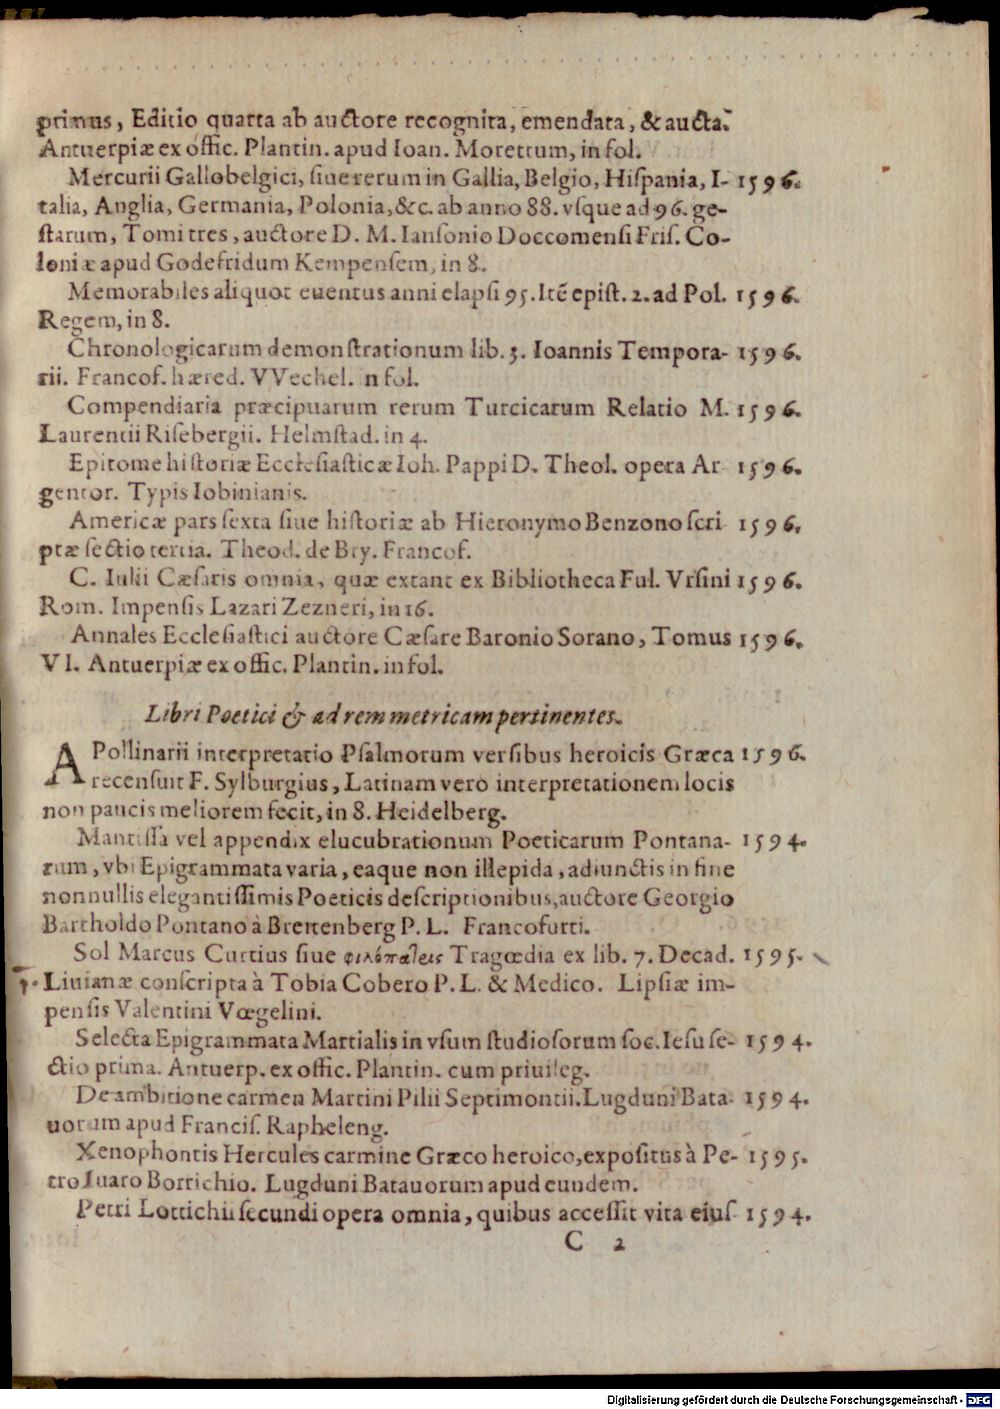 primus, Editio quarta ab auctore recognita, emendata, & aucta.
Antuerpiæ ex offic. Plantin. apud Ioan. Moretrum, in fol.
Mercurii Gallobelgici, siue rerum in Gallia, Belgio, Hiſpania, I- 1596.
talia, Anglia, Germania, Polonia, &c. ab anno 88. vſque ad 96. ge-
ſtarum, Tomi tres, auctore D. M. Ianſonio Doccomenſi Friſ. Co-
loniæ apud Godefridum Kempenſem, in 8.
Memorabiles aliquot euentus anni elapſi 95. Itē epiſt. 2. ad Pol. 1596.
Regem, in 8.
Chronologicarum demonſtrationum lib. 3. Ioannis Tempora- 1596.
rii. Francof. hæred. VVechel. n fol.
Compendiaria præcipuarum rerum Turcicarum Relatio M. 1596.
Laurentii Riſebergii. Helmſtad. in 4.
Epitome hiſtoriæ Eccleſiaſticæ Ioh. Pappi D. Theol. opera Ar 1596.
gentor. Typis Iobinianis.
Americæ pars ſexta ſiue hiſtoriæ ab Hieronymo Benzono ſcri 1596.
ptæ ſectio tertia. Theod. de Bry. Francof.
C. Iulii Cæſaris omnia, quæ extant ex Bibliotheca Ful. Vrſini 1596.
Rom. Impenſis Lazari Zezneri, in 16.
Annales Eccleſiaſtici auctore Cæſare Baronio Sorano, Tomus 1596.
VI. Antuerpiæ ex offic. Plantin. in fol.
Libri Poetici & ad rem metricam pertinentes.
APollinarii interpretatio Pſalmorum verſibus heroicis Græca 1596.
recenſuit F. Sylburgius, Latinam vero interpretationem locis
non paucis meliorem fecit, in 8. Heidelberg.
Mantiſſa vel appendix elucubrationum Poeticarum Pontana- 1594.
rum, vbi Epigrammata varia, eaque non illepida, adiunctis in fine
nonnullis elegantiſſimis Poeticis deſcriptionibus, auctore Georgio
Bartholdo Pontano à Brettenberg P. L. Francofurti.
Sol Marcus Curtius ſiue φιλόπαλεις Tragœdia ex lib. 7. Decad. 1595.
1. Liuianæ conſcripta à Tobia Cobero P. L. & Medico. Lipſiæ im-
penſis Valentini Vœgelini.
Selecta Epigrammata Martialis in vſum ſtudioſorum ſoc. Ieſu ſe- 1594.
ctio prima. Antuerp. ex offic. Plantin. cum priuileg.
De ambitione carmen Martini Pilii Septimontii. Lugduni Bata- 1594.
uorum apud Franciſ. Rapheleng.
Xenophontis Hercules carmine Græco heroico, expoſitus à Pe- 1595.
tro Iuaro Borrichio. Lugduni Batauorum apud eundem.
Petri Lottichii ſecundi opera omnia, quibus acceſſit vita eiuſ- 1594.
C 2
Digitalisierung gefördert durch die Deutsche Forschungsgemeinschaft - DFG